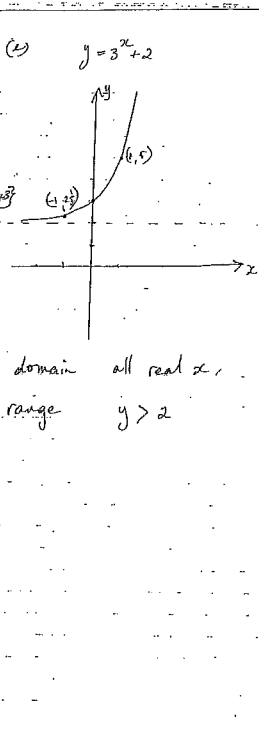 (e) y = 3^x + 2
y
(1, 5)
(-1, 2⅓)
x
domain all real x,
range y > 2